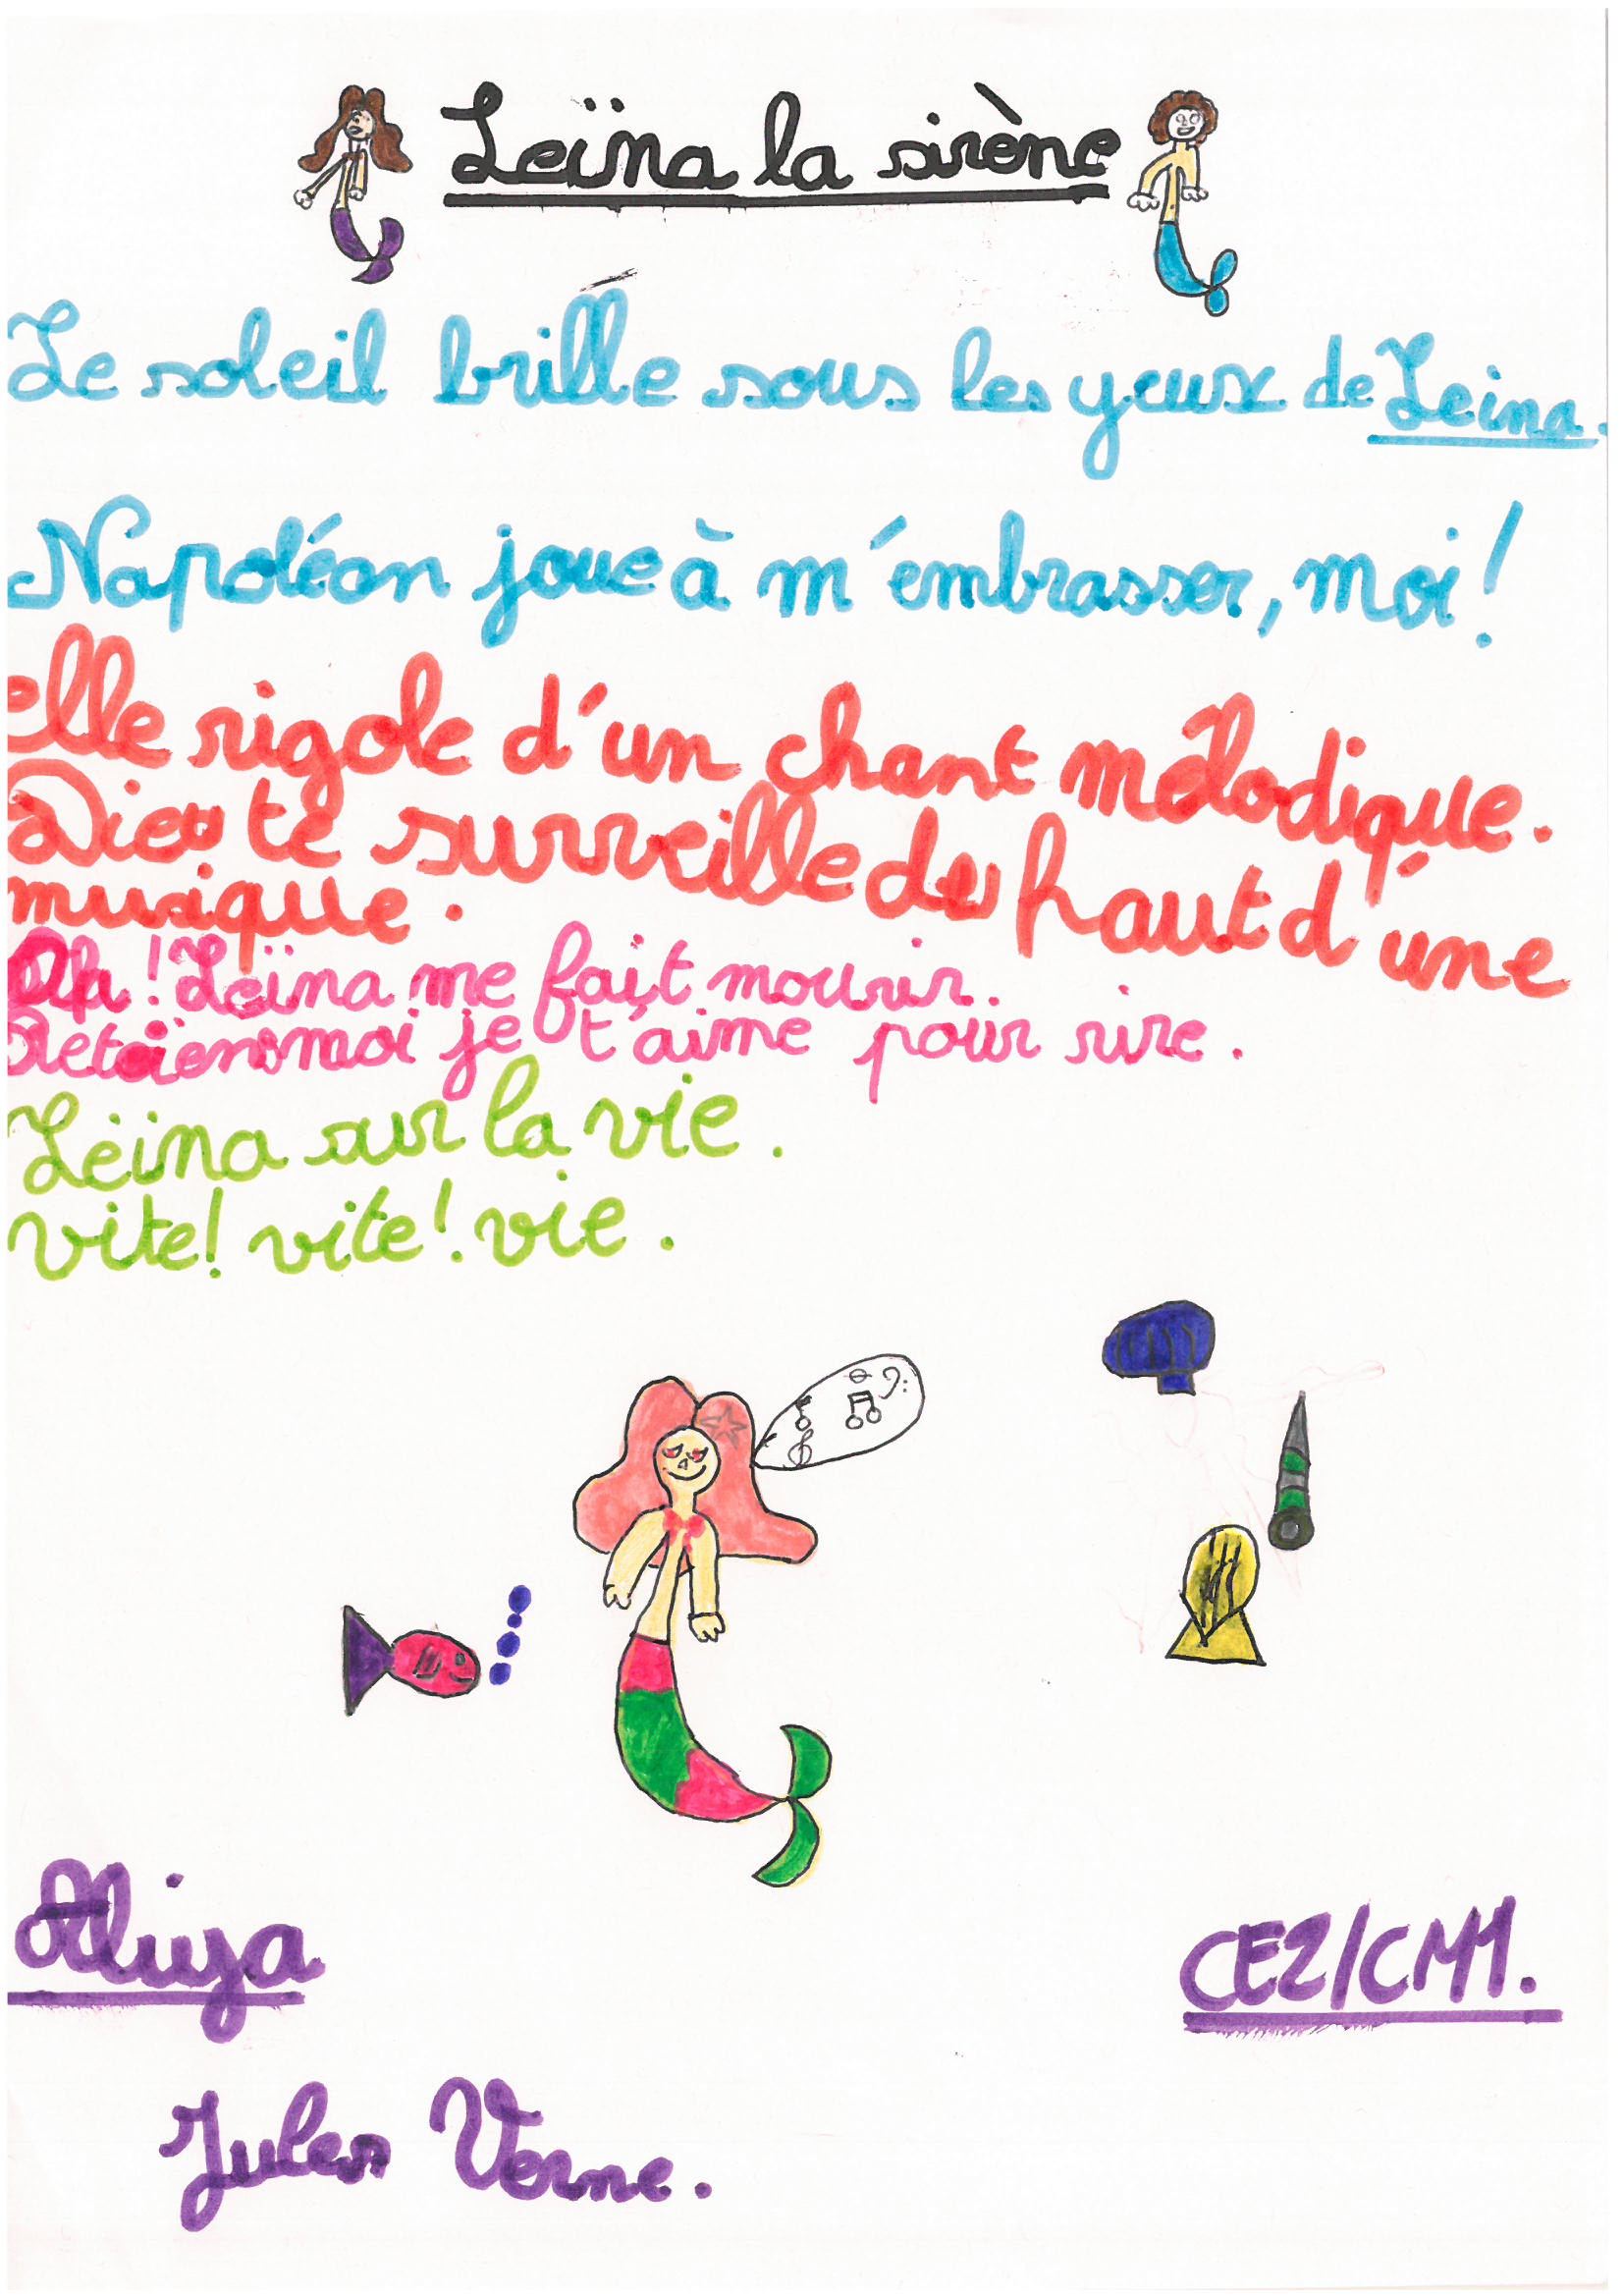 Leïna la sirène
Le soleil brille sous les yeux de Leina.
Napoléon joue à m'embrasser, moi!
elle rigole d'un chant mélodique.
Dieu te surveille du haut d'une
musique.
Ah! Leïna me fait mourir.
moi je t'aime pour rire.
Leïna sur la vie.
vite! vite! vie.
CE2/CM1.
Jules Verne.